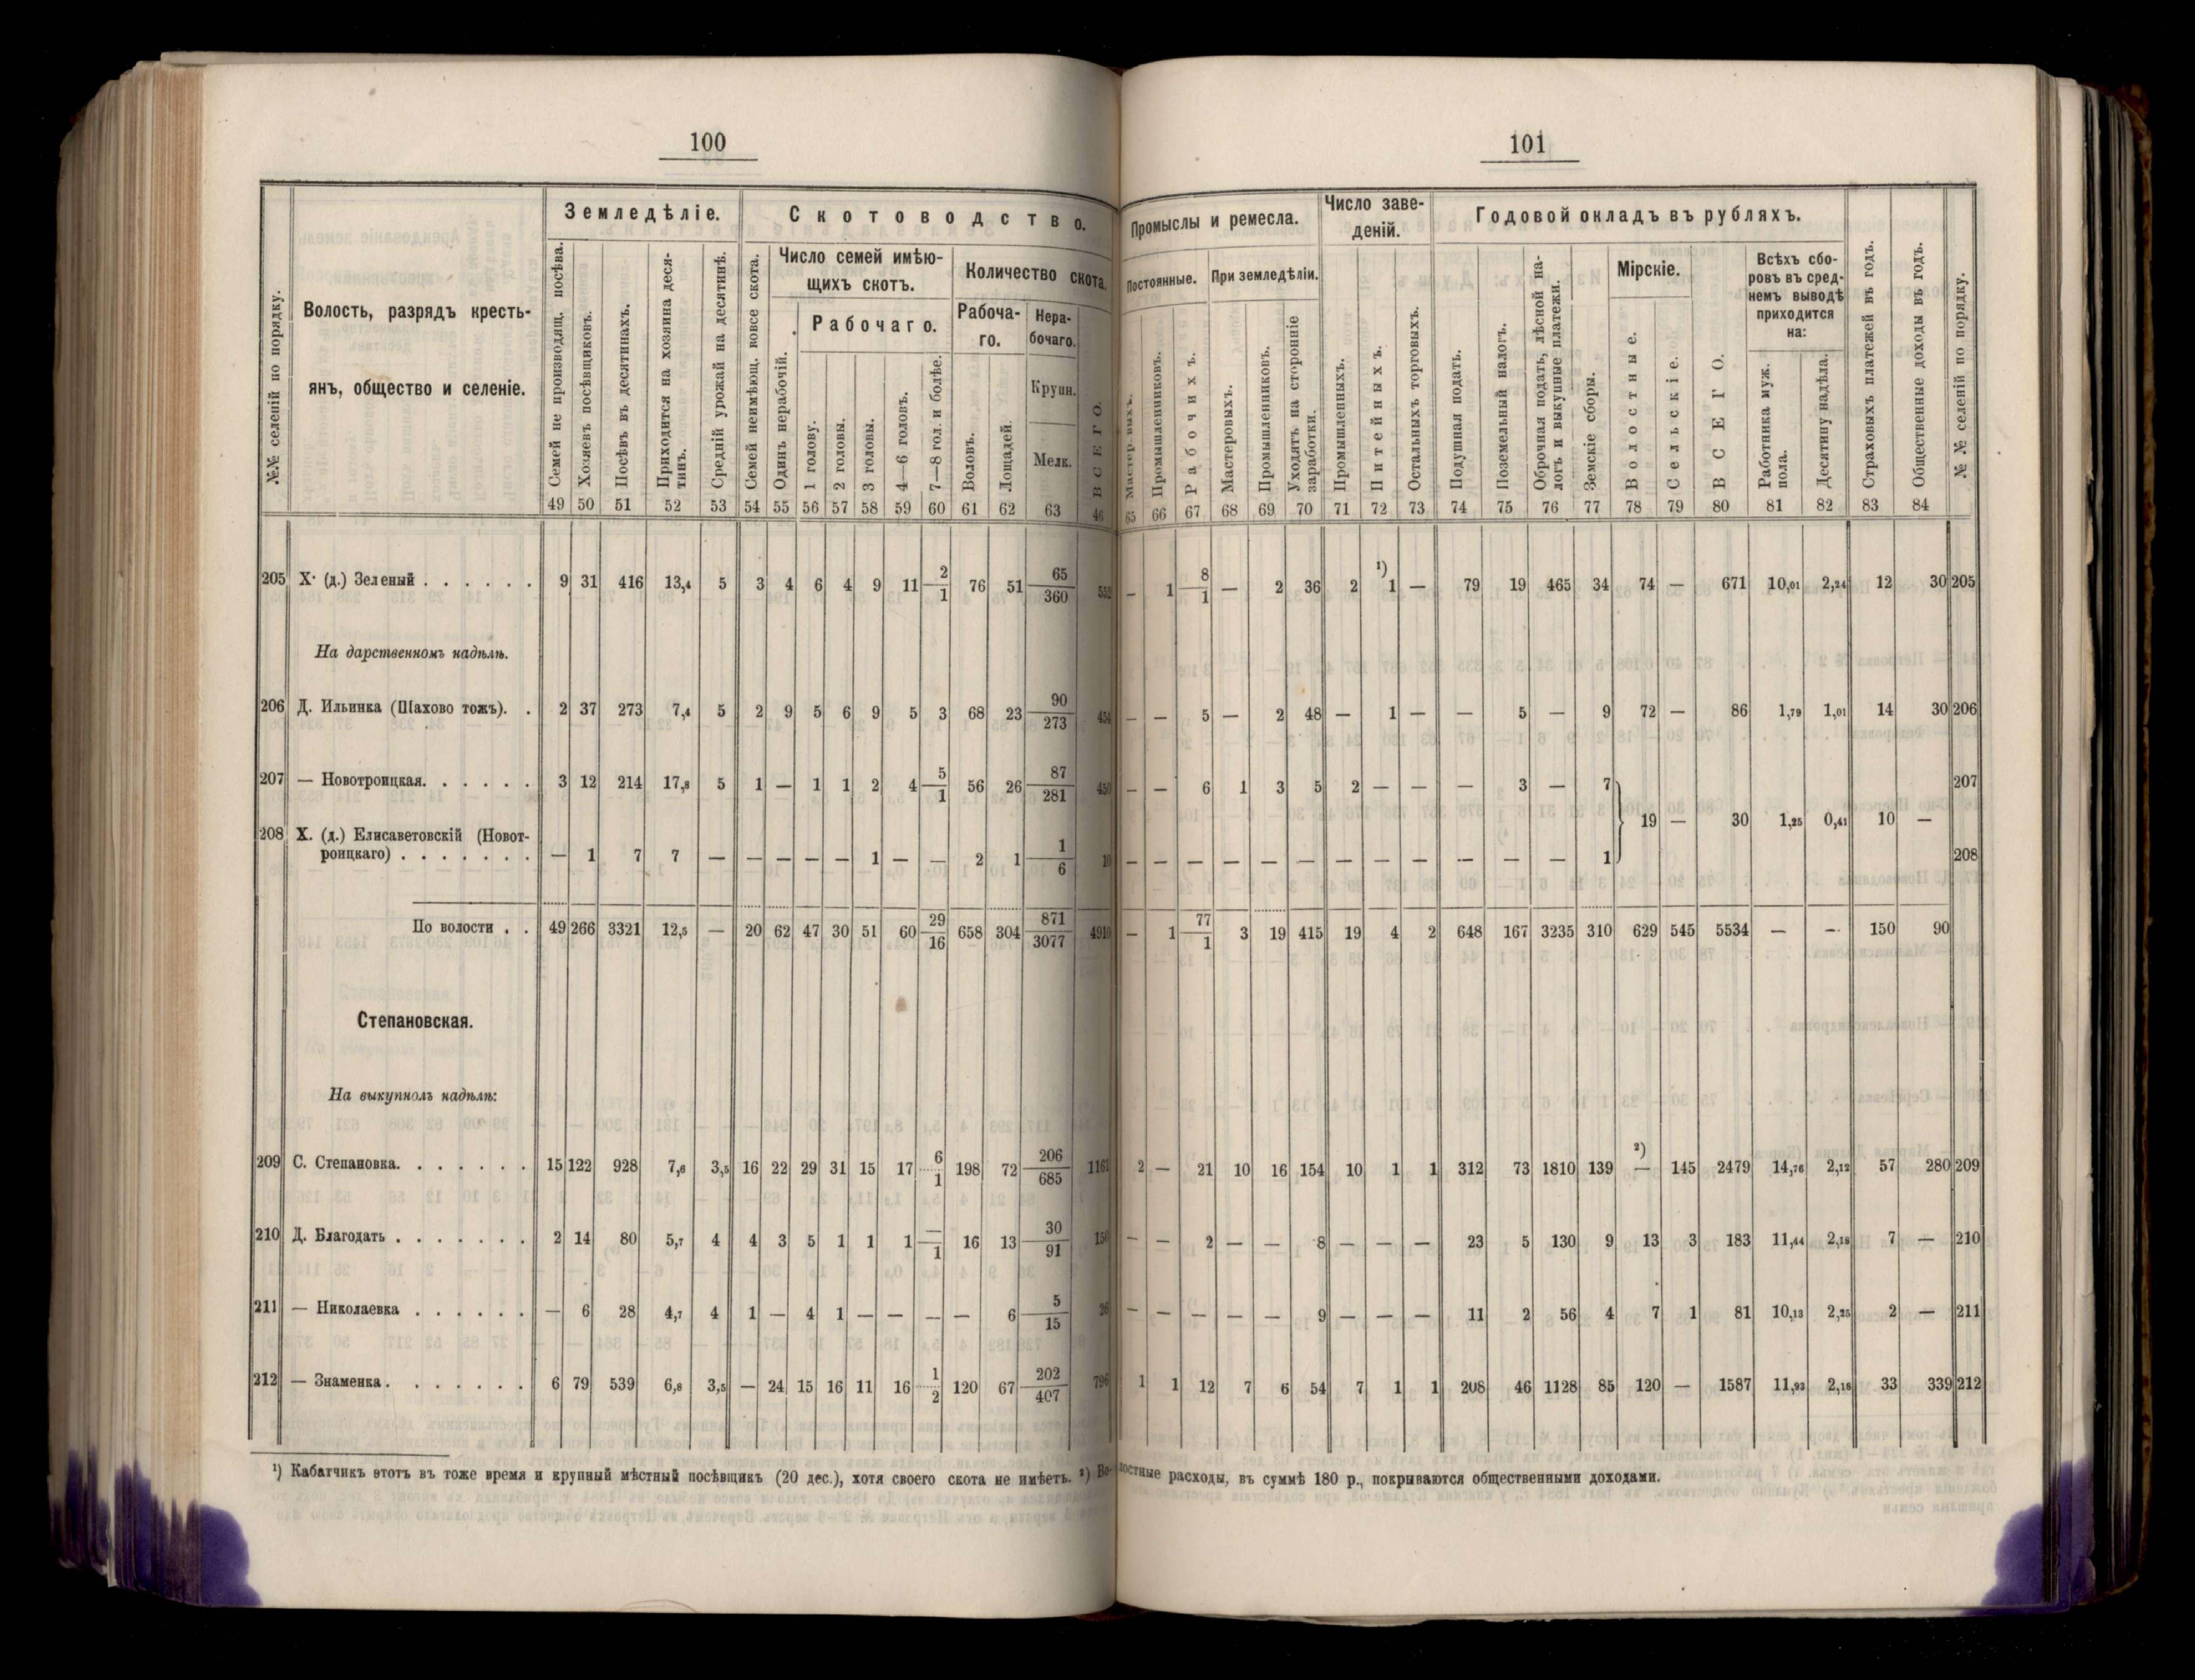 100
101
Земледѣліе.
Скотоводство.
Промыслы и ремесла.
Число заве-
деній.
Годовой окладъ въ рубляхъ.
№№ селеній по порядку.
Волость, разрядъ кресть-
янъ, общество и селеніе.
Семей не производящ. посѣва.
Хозяевъ посѣвщиковъ.
Посѣвъ въ десятинахъ.
Приходится на хозяина деся-
тинъ.
Средній урожай на десятинѣ.
Семей неимѣющ. вовсе скота.
Число семей имѣю-
щихъ скотъ.
Одинъ нерабочій.
Рабочаго.
1 голову.
2 головы.
3 головы.
4—6 головъ.
7—8 гол. и болѣе.
Количество скота.
Рабоча-
го.
Воловъ.
Лошадей.
Нера-
бочаго.
Крупн.
Мелк.
ВСЕГО.
Постоянные.
Мастеровыхъ.
Промышленниковъ.
Рабочихъ.
При земледѣліи.
Мастеровыхъ.
Промышленниковъ.
Уходятъ на сторонніе
заработки.
Промышленныхъ.
Питейныхъ.
Остальныхъ торговыхъ.
Подушная подать.
Поземельный налогъ.
Оброчная подать, лѣсной на-
логъ и выкупные платежи.
Земскіе сборы.
Мірскіе.
Волостные.
Сельскіе.
ВСЕГО.
Всѣхъ сбо-
ровъ въ сред-
немъ выводѣ
приходится
на:
Работника муж.
пола.
Десятину надѣла.
Страховыхъ платежей въ годъ.
Общественные доходы въ годъ.
№ № селеній по порядку.
49 50 51 52 53 54 55 56 57 58 59 60 61 62 63 46 65 66 67 68 69 70 71 72 73 74 75 76 77 78 79 80 81 82 83 84
205 Х. (д.) Зеленый . . . . . . 9 31 416 13,4 5 3 4 6 4 9 11 2/1 76 51 65/360 552 — 1 8/1 — 2 36 2 ¹) 1 — 79 19 465 34 74 — 671 10,01 2,24 12 30 205
На дарственномъ надѣлѣ.
206 Д. Ильинка (Шахово тожъ). . 2 37 273 7,4 5 2 9 5 6 9 5 3 68 23 90/273 454 — — 5 — 2 48 — 1 — — 5 — 9 72 — 86 1,79 1,01 14 30 206
207 — Новотроицкая. . . . . . 3 12 214 17,8 5 1 — 1 1 2 4 5/1 56 26 87/281 450 — — 6 1 3 5 2 — — — 3 — 7 } 19 — 30 1,25 0,41 10 — 207
208 Х. (д.) Елисаветовскій (Новот-
роицкаго) . . . . . . . — 1 7 7 — — — — — 1 — — 2 1 1/6 10 — — — — — — — — — — — — 1 208
По волости . . 49 266 3321 12,5 — 20 62 47 30 51 60 29/16 658 304 871/3077 4910 — 1 77/1 3 19 415 19 4 2 648 167 3235 310 629 545 5534 — — 150 90
Степановская.
На выкупномъ надѣлѣ:
209 С. Степановка. . . . . . . 15 122 928 7,6 3,5 16 22 29 31 15 17 6/1 198 72 206/685 1161 2 — 21 10 16 154 10 1 1 312 73 1810 139 ²) — 145 2479 14,76 2,12 57 280 209
210 Д. Благодать . . . . . . . 2 14 80 5,7 4 4 3 5 1 1 1 —/1 16 13 30/91 150 — — 2 — — 8 — — — 23 5 130 9 13 3 183 11,44 2,18 7 — 210
211 — Николаевка . . . . . . — 6 28 4,7 4 1 — 4 1 — — — — 6 5/15 26 — — — — — 9 — — — 11 2 56 4 7 1 81 10,13 2,25 2 — 211
212 — Знаменка . . . . . . . 6 79 539 6,8 3,5 — 24 15 16 11 16 1/2 120 67 202/407 796 1 1 12 7 6 54 7 1 1 208 46 1128 85 120 — 1587 11,93 2,18 33 339 212
¹) Кабатчикъ этотъ въ тоже время и крупный мѣстный посѣвщикъ (20 дес.), хотя своего скота не имѣетъ. ²) Во-лостные расходы, въ суммѣ 180 р., покрываются общественными доходами.